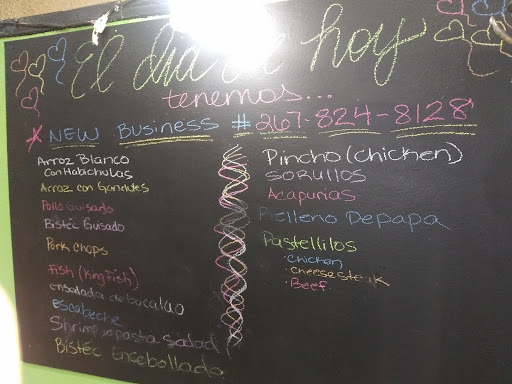 El dia de hoy
tenemos...
* NEW BUSINESS # 267-824-8128
Arroz Blanco
Con Habichulas
Arroz con Gandules
Pollo Guisado
Bistéc Guisado
Pork chops
Fish (King Fish)
ensalada de bacalao
escabeche
Shrimp pasta salad
Bistéc Encebollado
Pincho (chicken)
SORULLOS
Acapurias
Relleno De papa
Pastelillos
· Chicken
· Cheese steak
· Beef